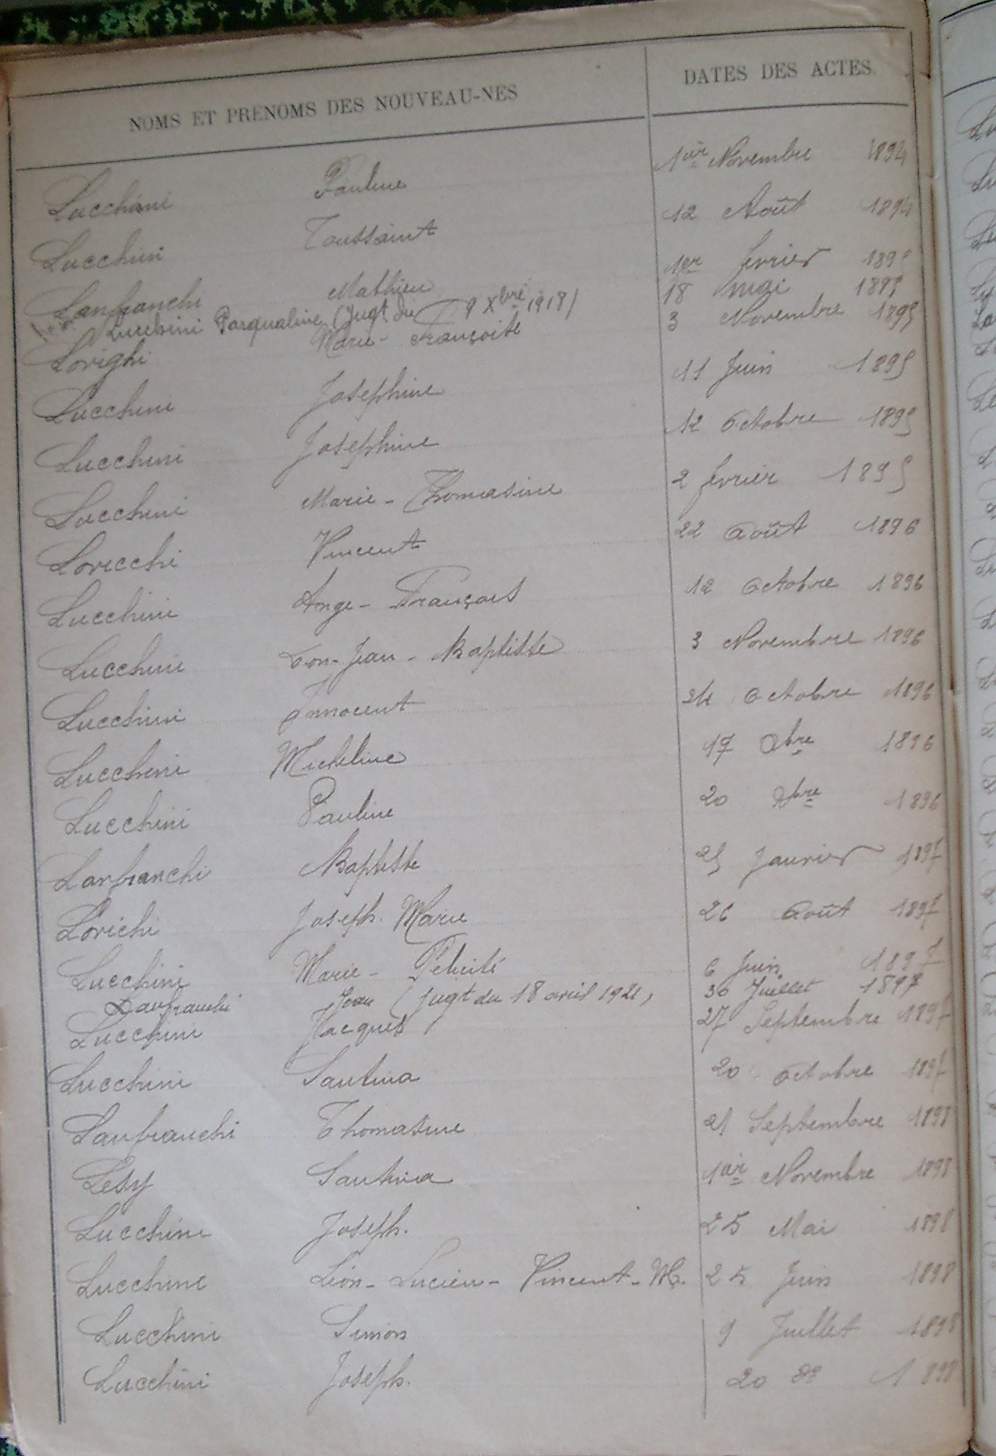 NOMS ET PRENOMS DES NOUVEAU-NES DATES DES ACTES.
Lucchini Pauline 1er Novembre 1894
Lucchini Toussaint 12 Août 1894
Lanfranchi Mathieu 1er fevrier 1895
Lucchini Pasqualine (Jugt du 9 Xbre 1918) 18 mai 1895
Lovighi Marie-Françoise 3 Novembre 1895
Lucchini Joséphine 11 Juin 1895
Lucchini Joséphine 12 Octobre 1895
Lucchini Marie-Thomasine 2 fevrier 1895
Lovicchi Vincent 22 Août 1896
Lucchini Ange-François 12 Octobre 1896
Lucchini Don-Jean-Baptiste 3 Novembre 1896
Lucchini Innocent 24 Octobre 1896
Lucchini Micheline 17 bre 1896
Lucchini Pauline 20 bre 1896
Lanfranchi Baptiste 25 Janvier 1897
Lovichi Joseph Marie 26 Août 1897
Lucchini Marie-Félicité 6 Juin 1897
Lanfranchi Jean (Jugt du 18 avril 1921) 30 Juillet 1897
Lucchini Jacques 27 Septembre 1897
Lucchini Santina 20 Octobre 1897
Lanfranchi Thomasine 21 Septembre 1898
Santina 1er Novembre 1898
Lucchini Joseph. 25 Mai 1898
Lucchini Léon-Lucien-Vincent-M. 25 Juin 1898
Lucchini Simon 9 Juillet 1898
Lucchini Joseph. 20 1898